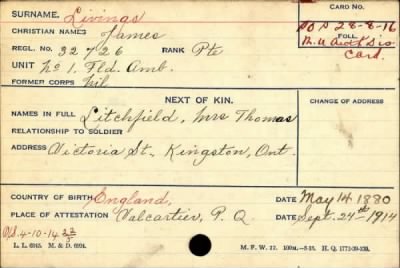 SURNAME. Livings CARD NO.
CHRISTIAN NAMES James S.O.S 28-8-16
REGL. NO. 32726 RANK Pte FOLL.
UNIT No 1. Fld. Amb. Card.
FORMER CORPS Nil
NEXT OF KIN. CHANGE OF ADDRESS
NAMES IN FULL Litchfield, Mrs Thomas
RELATIONSHIP TO SOLDIER
ADDRESS Victoria St., Kingston, Ont.
COUNTRY OF BIRTH England. DATE May 14 1880
PLACE OF ATTESTATION Valcartier, P. Q. DATE Sept. 24th 1914
O/S. 4-10-14
L. L. 6945. M. & D. 6924. M. F. W. 22.